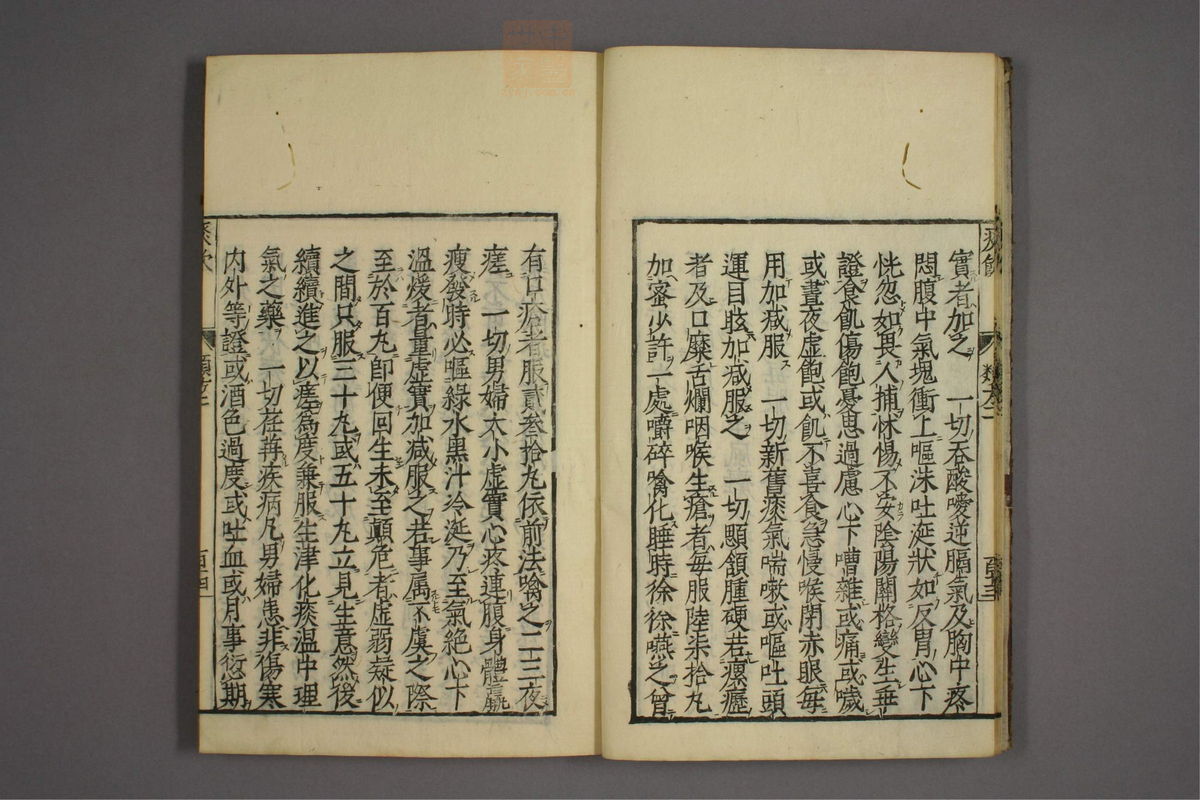 實者加之 一切吞酸噯逆膈氣及胸中疼
悶腹中氣塊衝上嘔沫吐涎狀如反胃心下
恍忽如畏人捕怵惕不安陰陽關格變生乖
證食飢傷飽憂思過慮心下嘈雜或痛或噦
或晝夜虛飽或飢不喜食急慢喉閉赤眼每
用加減服 一切新舊痰氣喘嗽或嘔吐頭
運目眩加減服之 一切顋頷腫硬若瘰癧
者及口糜舌爛咽喉生瘡者每服陸柒拾丸
加蜜少許一處嚼碎噙化睡時徐徐嚥之曾
有口瘡者服貳叁拾丸依前法噙之二三夜
瘥 一切男婦大小虛實心疼連腹身體羸
瘦發時必嘔綠水黑汁冷涎乃至氣絕心下
溫煖者量虛實加減服之若事属不虞之際
至於百丸即便回生未至顛危者虛弱疑似
之間只服三十丸或五十丸立見生意然後
續續進之以瘥為度兼服生津化痰温中理
氣之藥 一切荏苒疾病凡男婦患非傷寒
内外等證或酒色過度或吐血或月事衍期